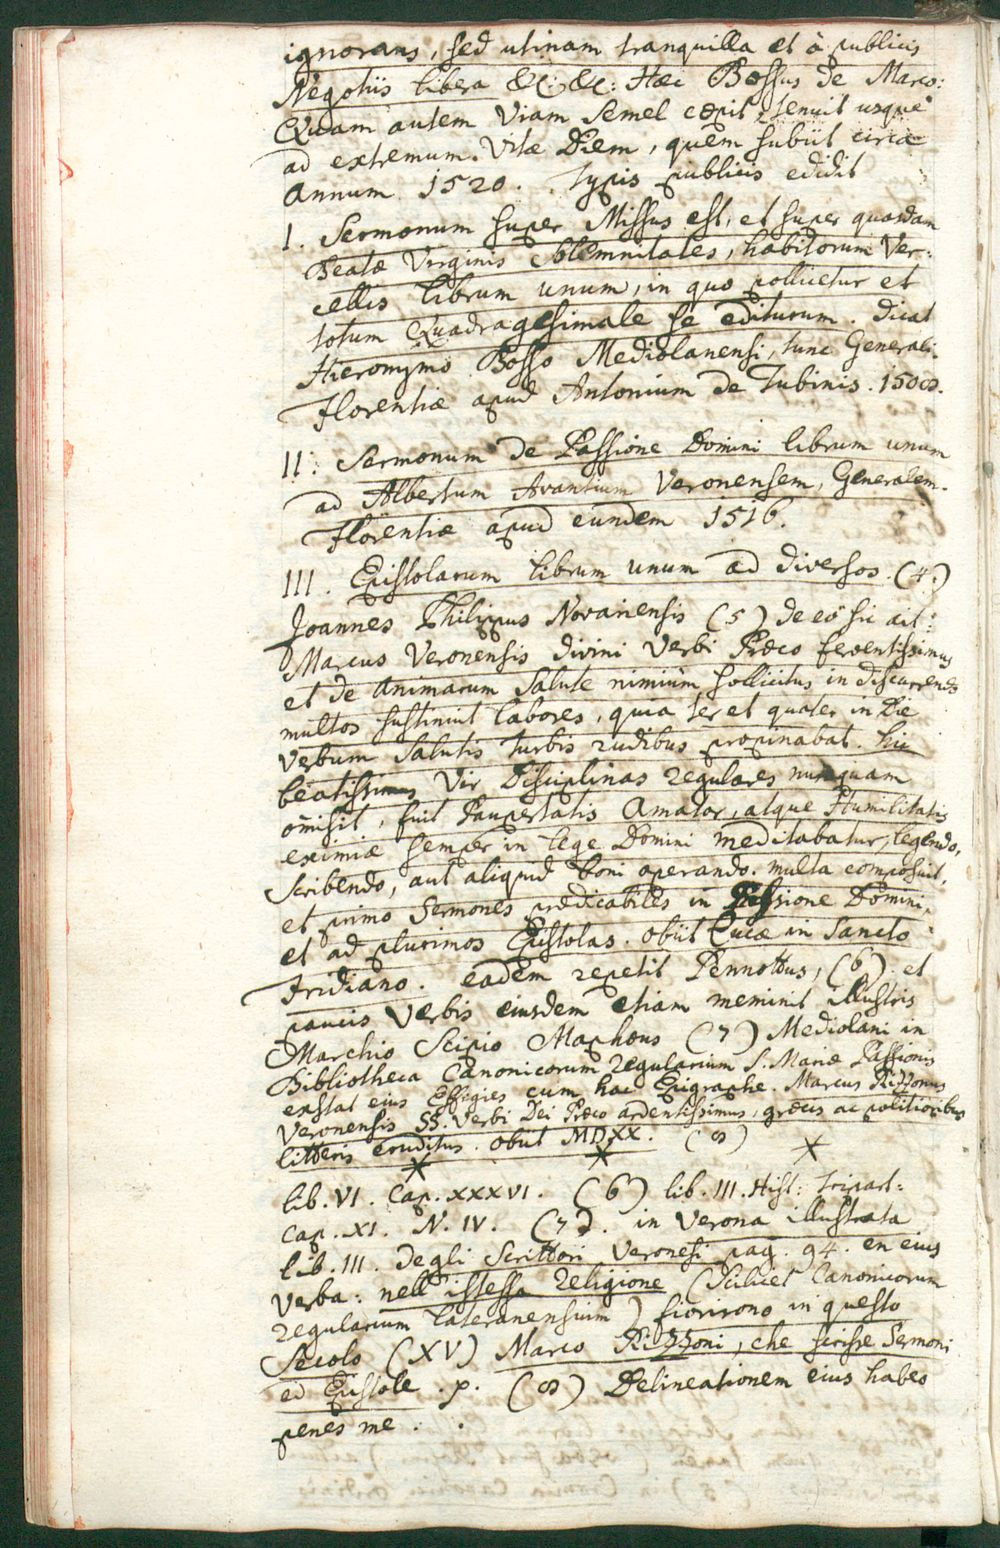 ignorans, sed utinam tranquilla et à publicis
Negotiis libera &c: &c: Hæc Bossus de Marco:
Quam autem Viam semel cœpit, tenuit usque
ad extremum Vitæ Diem, quem subiit circa
annum 1520. Typis publicis edidit
I. Sermonum super Missus est, et super quasdam
Beatæ Virginis Solemnitates, habitorum Ver:
cellis librum unum, in quo pollicetur et
totum Quadragesimale se editurum. dicat
Hieronymo Bosso Mediolanensi, tunc Generali.
Florentiæ apud Antonium de Tubinis. 1508.
II. Sermonum de Passione Domini librum unum
ad Albertum Avantium Veronensem, Generalem.
Florentiæ apud eundem 1516.
III. Epistolarum librum unum ad diversos. (4.)
Joannes Philippus Novariensis (5) de eo sic ait:
Marcus Veronensis divini Verbi Præco ferventissimus
et de Animarum Salute nimium sollicitus in discurrendo
multos sustinuit labores, quia ter et quater in Die
Verbum Salutis turbis rudibus propinabat. hic
beatissimus Vir Disciplinas regulares nunquam
omisit, fuit Paupertatis Amator, atque Humilitatis
eximiæ semper in lege Domini meditabatur, legendo,
scribendo, aut aliquid boni operando. multa composuit,
et primo Sermones prædicabiles in Passione Domini,
et ad plurimos Epistolas. obiit Lucæ in Sancto
Fridiano. eadem repetit Pennottus, (6) et
paucis Verbis eiusdem etiam meminit illustris
Marchio Scipio Mapheus (7) Mediolani in
Bibliotheca Canonicorum regularium S. Mariæ Passionis
exstat eius Effigies cum hac Epigraphe. Marcus Rizzonus
Veronensis SS. Verbi Dei Præco ardentissimus, græcis ac politioribus
litteris eruditus. obiit MDXX. (8)
lib. VI. Cap. XXXVI. (6) lib. III. Hist: Tripart:
Cap. XI. N. IV. (7). in Verona illustrata
lib. III. degli Scrittori Veronesi pag. 94. en eius
Verba: nell' istessa Religione (scilicet Canonicorum
regularium Lateranensium) fiorirono in questo
Secolo (XV) Marco Rizzoni, che scrisse Sermoni
ed Epistole. p. (8) Delineationem eius habeo
penes me.